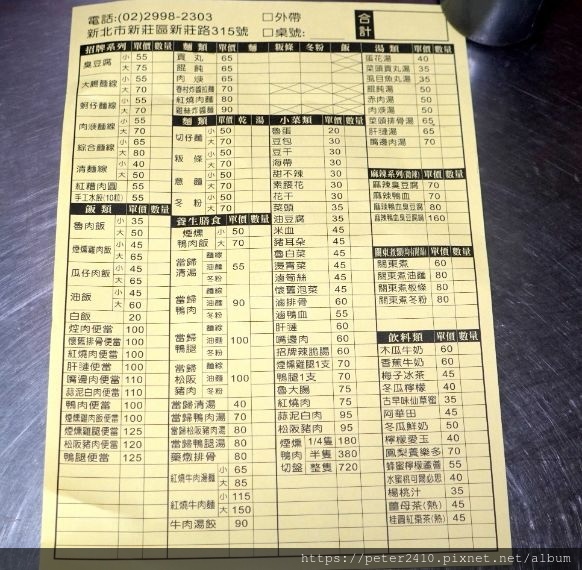 電話:(02)2998-2303 □外帶 合計
新北市新莊區新莊路315號 □桌號:
招牌系列 單價 數量
臭豆腐 小 55
大 75
大腸麵線 小 55
大 70
蚵仔麵線 小 55
大 70
肉羹麵線 小 55
大 70
綜合麵線 小 65
大 80
清麵線 小 40
大 50
紅糟肉圓 55
手工水餃(10粒) 55
飯類 單價 數量
魯肉飯 小 35
大 50
煙燻雞肉飯 小 45
大 65
瓜仔肉飯 小 45
大 65
油飯 小 45
大 60
白飯 20
焢肉便當 100
懷舊排骨便當 100
紅燒肉便當 100
肝連便當 100
嘴邊肉便當 110
蒜泥白肉便當 110
鴨肉便當 100
煙燻雞肉飯便當 100
煙燻雞腿便當 125
松阪豬肉便當 120
鴨腿便當 125
麵類 單價 麵 粄條 冬粉 飯
貢丸 65
餛飩 65
肉羹 65
春村炸醬拉麵 70
紅燒肉麵 80
雞絲炸醬麵 90
麵類 單價 乾 湯
切仔麵 小 50
大 70
粄條 小 50
大 70
意麵 小 50
大 70
冬粉 小 50
大 70
養生膳食 單價 數量
煙燻鴨肉飯 小 50
大 70
當歸清湯 麵線 油麵 冬粉 55
當歸鴨肉 麵線 油麵 冬粉 90
當歸鴨腿 麵線 油麵 冬粉 100
當歸松阪豬肉 麵線 油麵 冬粉 100
當歸清湯 40
當歸鴨肉湯 70
當歸松阪豬肉湯 80
當歸鴨腿湯 80
藥燉排骨 80
紅燒牛肉湯麵 小 65
大 85
紅燒牛肉麵 小 115
大 150
牛肉湯餃 90
小菜類 單價 數量
魯蛋 20
豆包 30
豆干 30
海帶 30
甜不辣 30
素腰花 30
花干 30
菜頭 35
油豆腐 35
米血 45
豬耳朵 45
魯白菜 45
燙青菜 45
滷筍絲 45
懷舊泡菜 45
滷排骨 60
滷鴨血 55
肝連 60
嘴邊肉 60
招牌辣脆腸 60
煙燻雞腿1支 70
鴨腿1支 70
魯大腸 75
紅燒肉 75
蒜泥白肉 95
松阪豬肉 95
煙燻 1/4隻 180
鴨肉 半隻 380
切盤 整隻 720
湯類 單價 數量
蛋花湯 40
菜頭貢丸湯 35
虱目魚丸湯 35
餛飩湯 50
赤肉湯 50
肉羹湯 50
菜頭排骨湯 65
肝連湯 65
嘴邊肉湯 70
麻辣系列(微辣) 單價 數量
麻辣臭豆腐 70
麻辣鴨血 70
麻辣鴨血臭豆腐 80
麻辣鴨血臭豆腐鍋 160
單價 數量
關東煮 60
關東煮油麵 80
關東煮粄條 80
關東煮冬粉 80
飲料類 單價 數量
木瓜牛奶 60
香蕉牛奶 60
梅子冰茶 45
冬瓜檸檬 40
古早味仙草蜜 35
阿華田 45
冬瓜鮮奶 50
檸檬愛玉 40
鳳梨養樂多 70
蜂蜜檸檬蘆薈 55
水蜜桃可爾必思 40
楊桃汁 35
薑母茶(熱) 45
桂圓紅棗茶(熱) 45
https://peter2410.pixnet.net/album